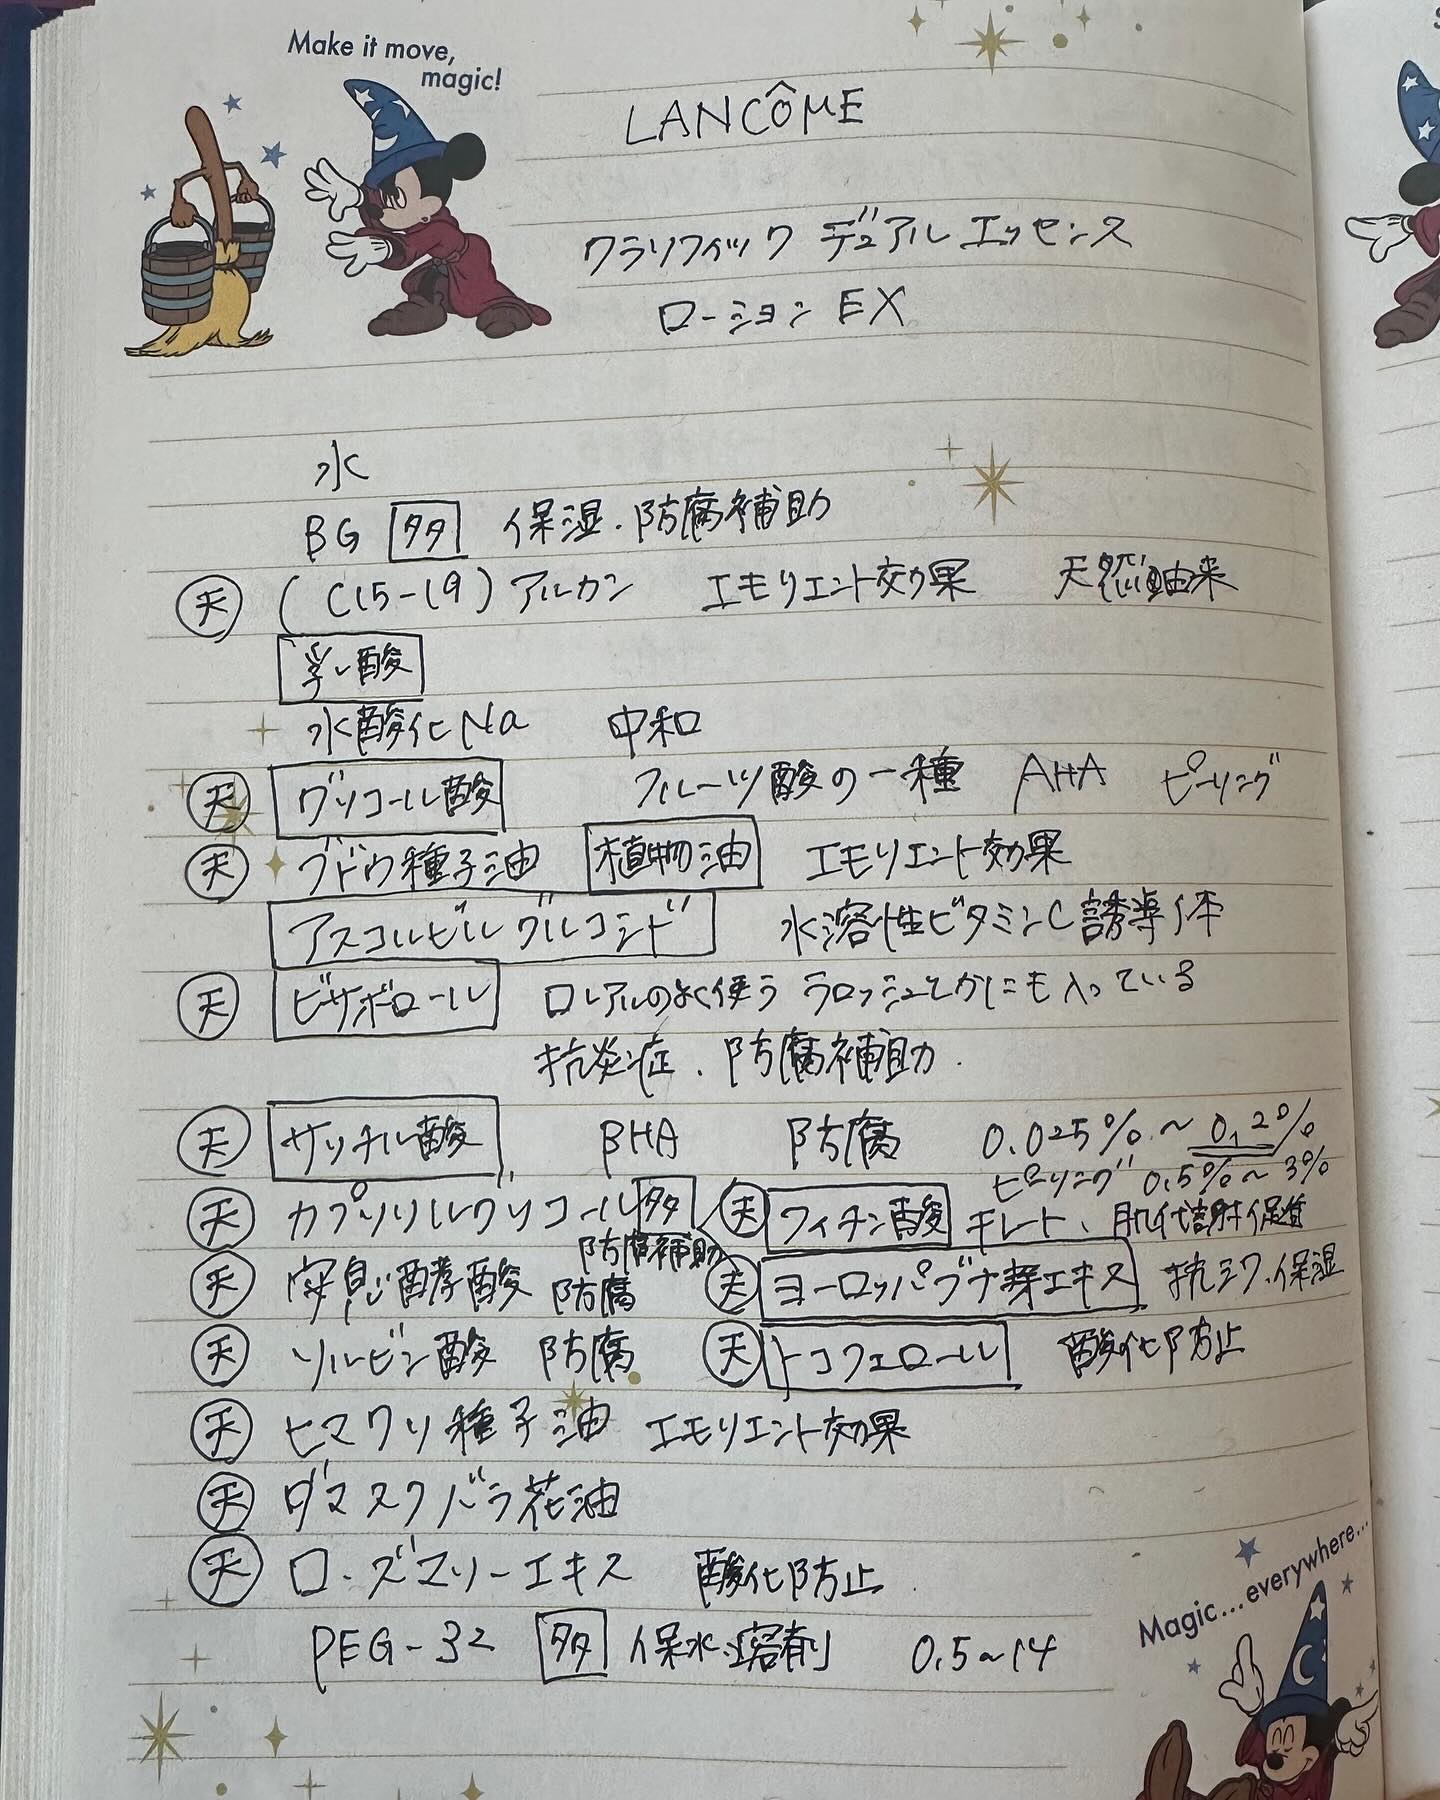 Make it move,
magic!
LANCÔME
クラリフィック デュアル エッセンス
ローション EX
水
BG 多 保湿・防腐補助
天 (C15-19) アルカン エモリエント効果 天然油由来
乳酸
水酸化Na 中和
天 グリコール酸 フルーツ酸の一種 AHA ピーリング
天 ブドウ種子油 植物油 エモリエント効果
アスコルビルグルコシド 水溶性ビタミンC誘導体
天 ビサボロール ロレアルのよく使う ラロッシュとかにも入っている
抗炎症、防腐補助.
天 サリチル酸 BHA 防腐 0.025%~0.2%
ピーリング 0.5%~3%
天 カプリリルグリコール 多 天 フィチン酸 キレート、肌代謝促進
防腐補助
天 安息酵酸 防腐 天 ヨーロッパブナ芽エキス 抗シワ、保湿
天 ソルビン酸 防腐 天 トコフェロール 酸化防止
天 ヒマワリ種子油 エモリエント効果
天 ダマスクバラ花油
天 ローズマリーエキス 酸化防止.
PEG-32 多 保水、溶剤 0.5~14
Magic...everywhere...